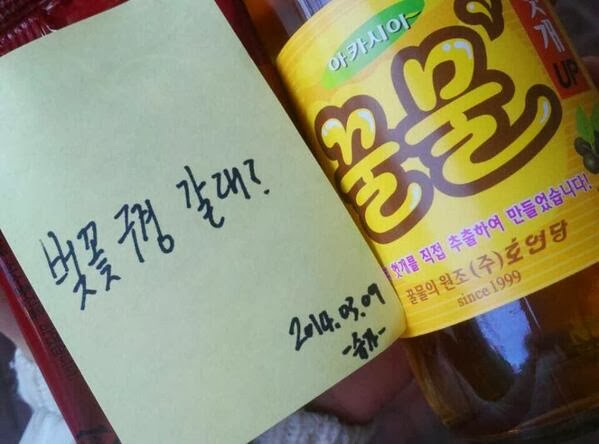 벚꽃 구경 갈래?
2014.03.09
아카시아
꿀물
헛개
UP
헛개를 직접 추출하여 만들었습니다!
꿀물의 원조 (주)호연당
since 1999